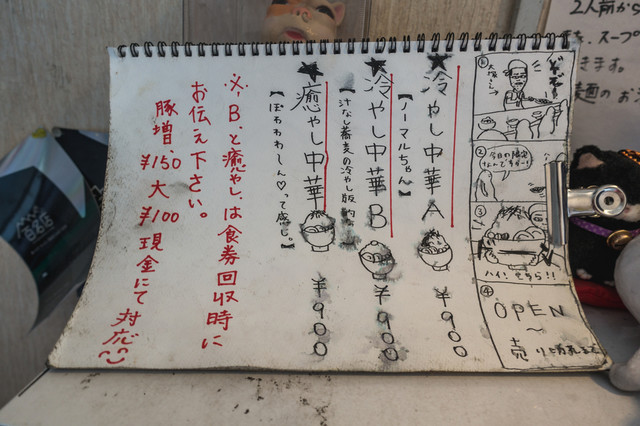 ①
②
今日の限定
なんですかー!
③
ハイ、そちら!!
④
OPEN
～
売り切れまで
★冷やし中華A ¥900
【ノーマルちゃん】
★冷やし中華B ¥900
【汁なし蕎麦の冷やし版的】
★癒やし中華 ¥900
【ぽわわわ～ん♡って感じ。】
※、B、と癒やし、は食券回収時に
お伝え下さい。
豚増、¥150 大 ¥100 現金にて対応
2人前から
スープ
きます。
麺のお